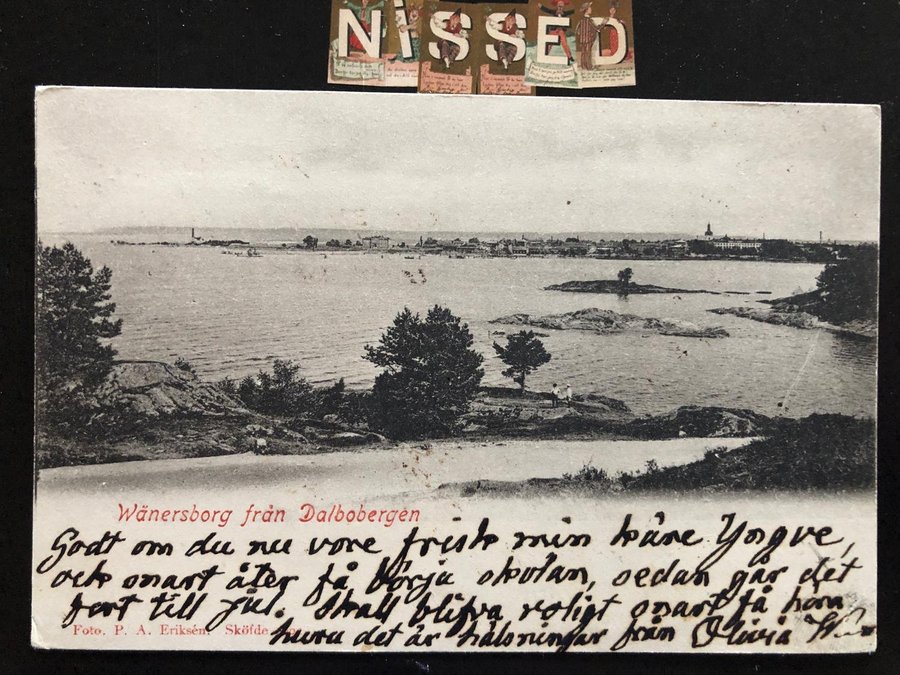 NISSED
Wänersborg från Dalbobergen
Godt om du nu vore frisk min käre Yngve,
och snart åter få börja skolan, sedan går det
fort till Jul. Skall blifva roligt snart få höra
Foto. P. A. Eriksén. Sköfde.
huru det är hälsningar från Olivia